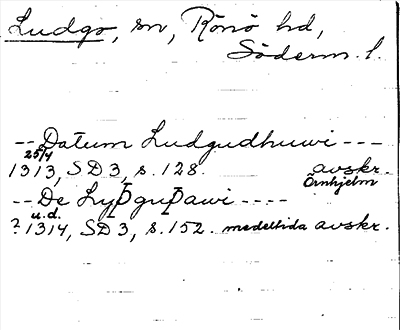 Ludgo, sn, Rönö hd,
Söderm. l.
-- Datum Ludgudhuwi ---
25/4
1313, SD 3, s. 128. avskr.
Örnhjelm
-- De Lyþguþawi ----
u.d.
? 1314, SD 3, s. 152. medeltida avskr.